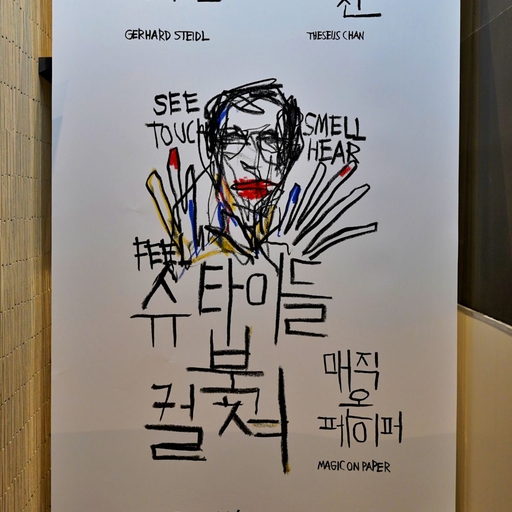 GERHARD STEIDL
THESEUS CHAN
SEE
TOUCH
SMELL
HEAR
FEEL
슈타이들
북
컬처
매직
온
페이퍼
MAGIC ON PAPER